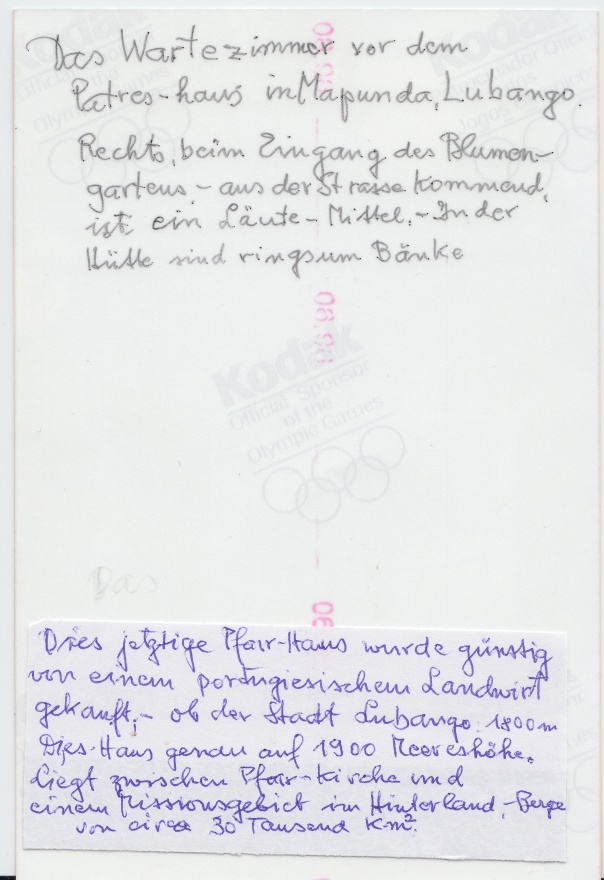 Das Wartezimmer vor dem
Patres-haus in Mapunda, Lubango.
Rechts, beim Eingang des Blumen-
gartens - aus der Strasse kommend,
ist ein Läute-Mittel. - In der
Hütte sind ringsum Bänke
08.98
Kodak
Official Sponsor
of the
Olympic Games
Das
Dies jetztige Pfarr-Haus wurde günstig
von einem portugiesischem Landwirt
gekauft; - ob der Stadt Lubango: 1800 m
Dies-Haus genau auf 1900 Meereshöhe.
Liegt zwischen Pfarr-kirche und
einem Missionsgebiet im Hinterland, -Berge
von circa 30 Tausend Km².